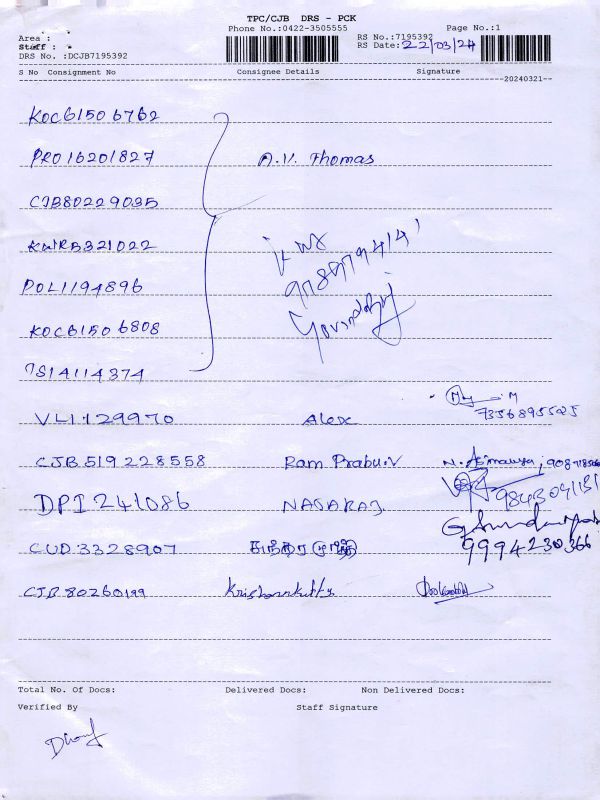 TPC/CJB DRS - PCK
Phone No.:0422-3505555 Page No.:1
Area :
Staff :
RS No.:7195392
RS Date: 22/03/24
DRS No. :DCJB7195392
S No Consignment No Consignee Details Signature
20240321
KOC61506762
PRO16201827 A.V. Thomas
CJB80229035
KWRB321022
POL1194896
KOC61506808
Govindaraj
TS14114374
VL1129970 Alex M
7356895525
CJB519228558 Ram Prabu.V
DPI241086 NAGARAJ 9843041181
CUD3328907 சுந்தரமூர்த்தி 9994230366
CJB80260199 Krishnankutty
Total No. Of Docs: Delivered Docs: Non Delivered Docs:
Verified By Staff Signature